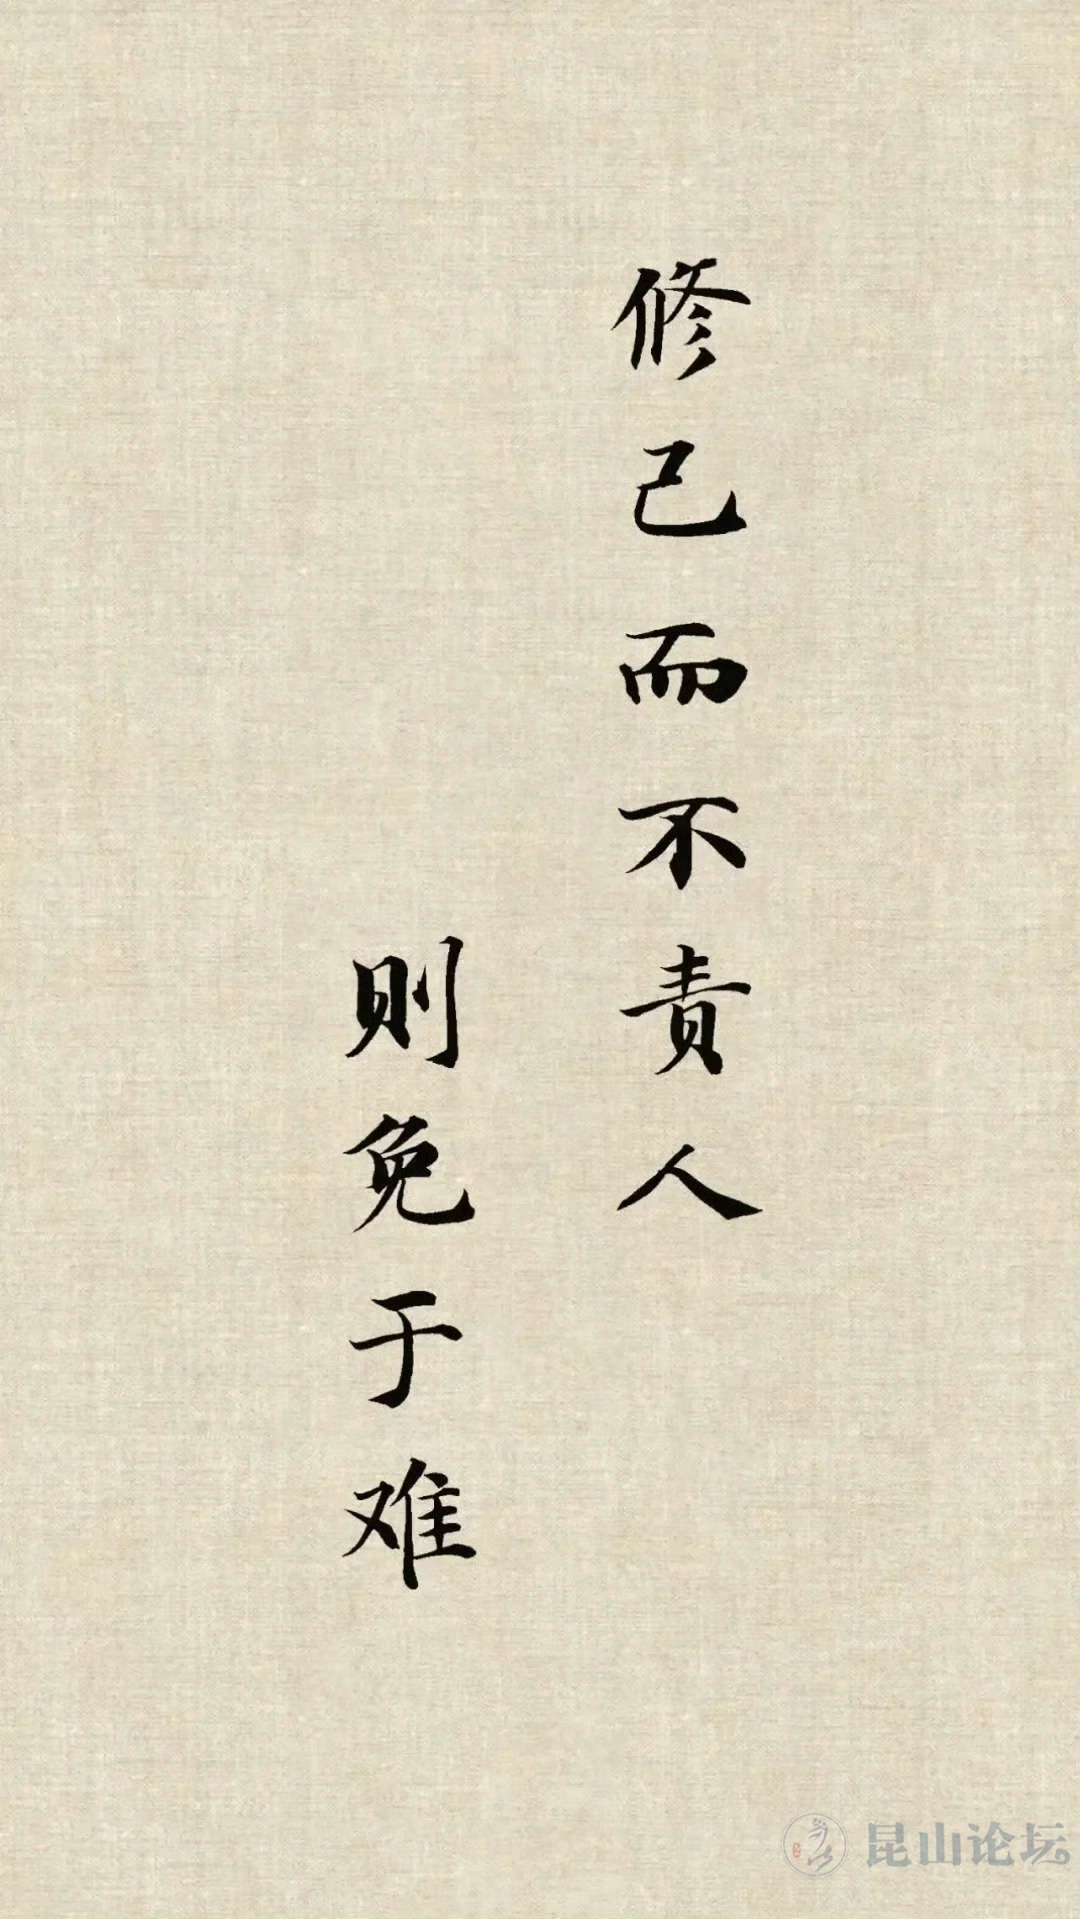 修己而不责人
则免于难
昆山论坛